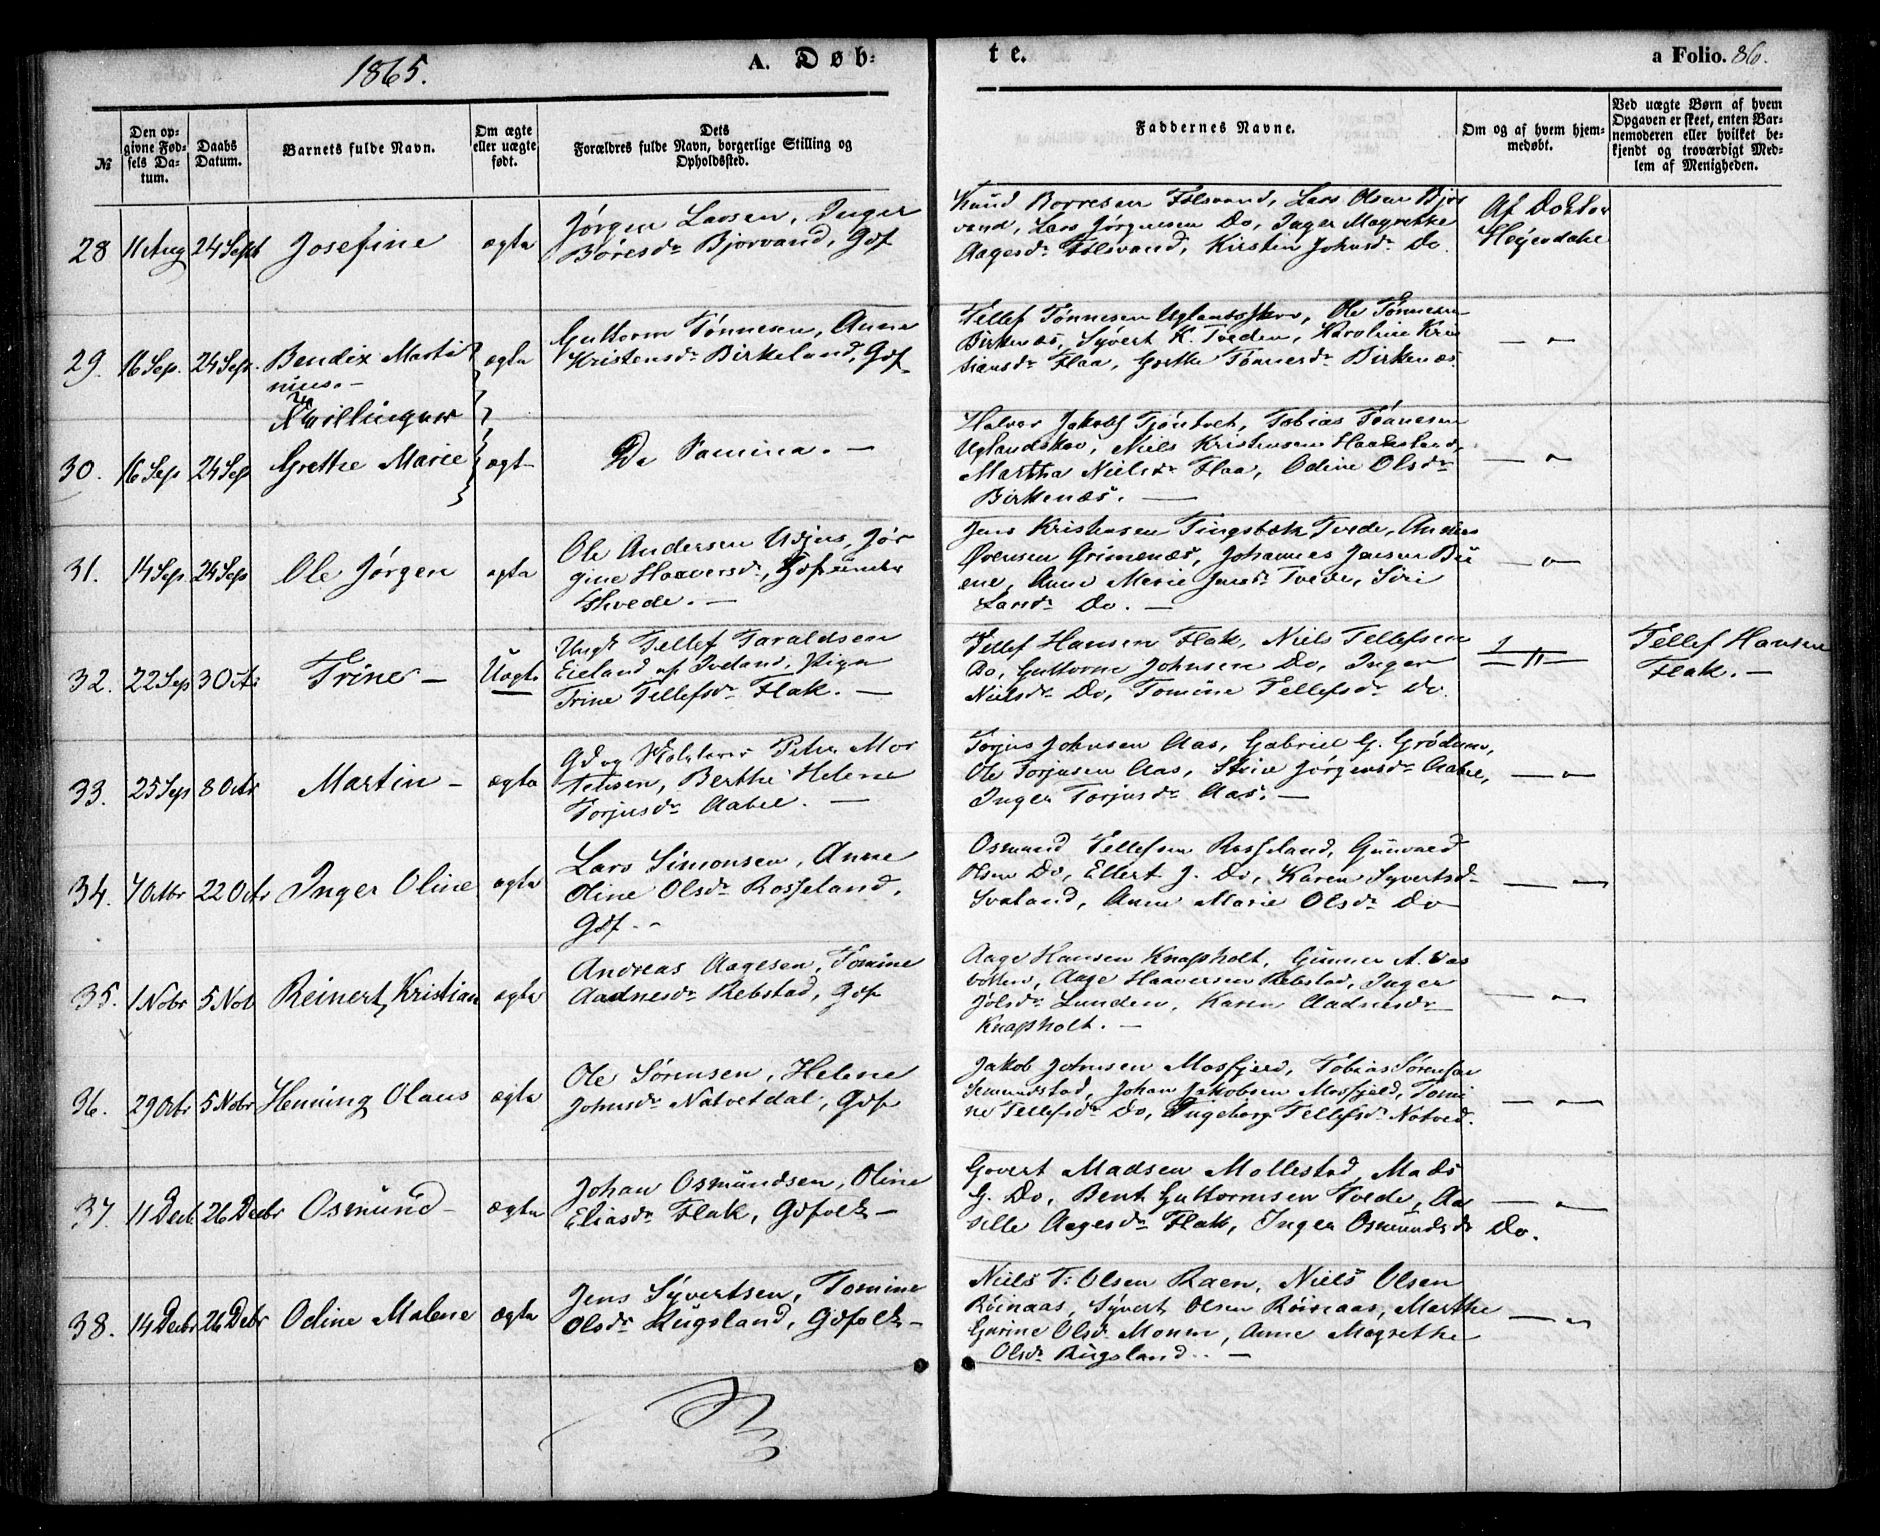 1865.
A. Døb-
te.
a Folio. 86.
№
Den op-
givne Fød-
sels Da-
tum.
Daabs
Datum.
Barnets fulde Navn.
Om ægte
eller uægte
født.
Dets
Forældres fulde Navn, borgerlige Stilling og
Opholdssted.
Faddernes Navne.
Om og af hvem hjem-
medøbt.
Ved uægte Børn af hvem
Opgaven er skeet, enten Bar-
nemoderen eller hvilket be-
kjendt og troværdigt Med-
lem af Menigheden.
28 11 Aug 24 Sept Josefine ægta
Jørgen Larsen, Inger
Børesdr Bjorvand, Gdf
Knud Borresen Folsvand, Lars Olsen Bjor
vand, Lars Jørgensen Do, Inger Magrethe
Aagesdr Folsvand, Kirstin Johnsdr Do.
Af Doktor
29. 16 Sep. 24 Sep. Bendix Marti
nius. –
ægta
Guttorm Tønnesen, Anne
Kristensdr Birkeland, Gdf.
Tellef Tønnesen Uglandsskov, Ole Tønnesen
Birkenæs, Syvert K. Tveden, Karoline Kris
tiansdr Flaa, Grethe Tønnesdr Birkenæs.
— " —
Tvillinger
30. 16 Sep 24 Sep Grethe Marie ægt
Do Famina. —
Halvor Jakobs Tjøntvet, Tobias Tønnesen
Uglandskov, Niels Kristensen Haabesland,
Martha Nielsdr Flaa, Odine Olsdr
Birkenæs. —
— " —
31. 14 Sep 24 Sep Ole Jørgen ægta
Ole Andersen Jør
gine Haaversdr, Gdf
Jens Kristensen Tingsbæk Tvede, Anders
Grimenæs, Johannes Jensen
Anne Marie Jensdr Tvede, Siri
Larsdr Do. —
— " —
32. 22 Sep 3 Octr Trine – Uægte
Ungk Tellef Taraldsen
Eieland af Iveland, Pige
Trine Tellefsdr Flak. —
Tellef Hansen Flak, Niels Tellefsen
Do, Guttorm Johnsen Do, Inger
Nielsdr Do, Tomine Tellefsdr Do.
— " —
Tellef Hansen
Flak. —
33. 25 Sep 8 Octr Martin – ægta
Gd og Peter Mor
tensen, Berthe Helene
Torjusdr Aabel. —
Torjus Johnsen Aas, Gabriel G. Grødum,
Ole Torjusen Aas, Stine Jørgensdr Aabel,
Inger Torjusdr Aas. —
— " —
34. 7 Octbr 22 Octr Inger Oline ægta
Lars Simonsen, Anne
Oline Olsdr Rosseland,
Gdf. –
Osmund Tellefsen Rosseland, Gunvald
Olsen Do, Ellert J. Do, Karen Syvertsd.
Svaland, Anne Marie Olsdr Do
— " —
35. 1 Nobr 5 Nob Reinert Kristian ægta
Andreas Aagesen, Tomine
Aadnesdr Rebstad, Gdf
Aage Hansen Knapholt, Gunner A. Vas
botten, Aage Haaversen Rebstad, Inger
Jølsdr Lunden, Karen Aadnesdr
Knapholt. —
— " —
36. 29 Octbr 5 Nobr Henning Olaus ægta
Ole Sørensen, Helene
Johnsdr Natvetdal, Gdf
Jakob Johnsen Mosfjeld, Tobias Sørensen
Senumstad, Johan Jakobsen Mosfjeld, Tomi
ne Tellefsdr Do, Ingeborg Tellefsdr Natved.
— " —
37. 11 Decb 26 Decbr Osmund – ægta
Johan Osmundsen, Oline
Eliasdr Flak, Gdfolk –
Govert Madsen Mollestad, Mads
G. Do, Bent Guttormsen Tvede, Aa
silte Aagesdr Flak, Inger Osmundsdr Do.
— " —
38. 14 Decbr 26 Decbr Odine Malene ægta
Jens Syvertsen, Tomine
Olsdr Rugsland, Gdfolk –
Niels T. Olsen Raen, Niels Olsen
Røinaas, Syvert Olsen Røinaas, Marthe
Gurine Olsdr Monen, Anne Magrethe
Olsdr Rugsland. —
— " —